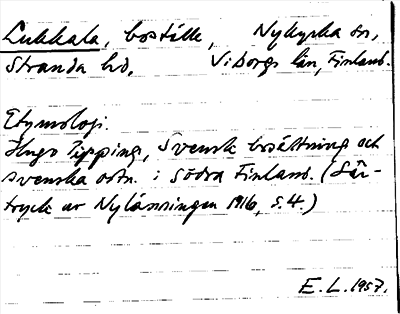 Lukkala, boställe, Nykyrka sn,
Stranda hd, Viborgs län, Finland.
Etymologi.
Hugo Pipping, Svensk bosättning och
svenska ortn. i södra Finland. (Sär-
tryck ur Nylänningen 1916, s. 4.)
E. L. 1957.